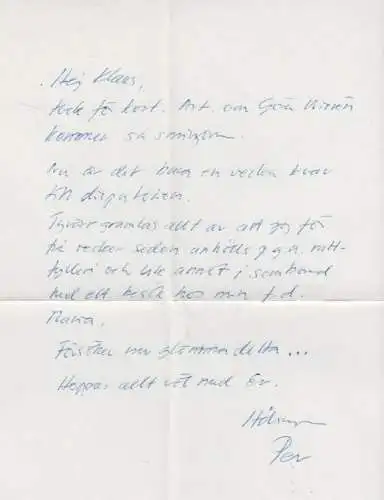 Hej Klaes,
tack för kort. Art. om Göra
kommer så småningom.
Nu är det bara en vecka kvar
till disputationen.
Tyvärr grumlas allt av att jag för
tre veckor sedan anhölls p.g.a. ratt-
fylleri och lite annat i samband
med ett besök hos min f.d.
Försöker nu glömma detta...
Hoppas allt väl med Er.
Hälsningar
Per